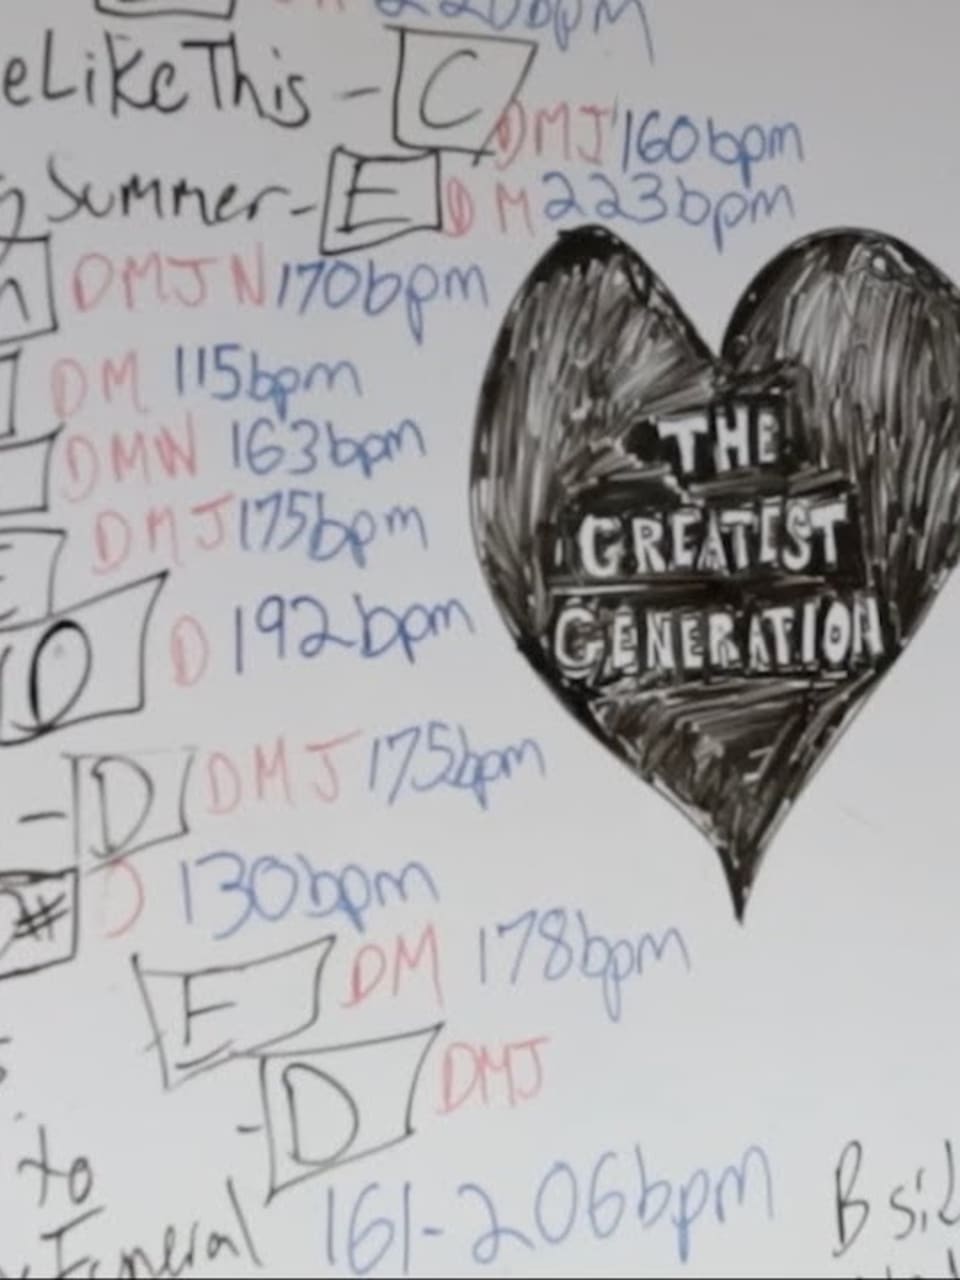 220bpm
eLikeThis - C DMJ 160bpm
g Summer - E DM 223bpm
DMJN 170bpm
DM 115bpm
DMW 163bpm
DMJ 175bpm
D 192bpm
- D DMJ 175bpm
# D 130bpm
E DM 178bpm
- D DMJ
to
Funeral 161-206bpm
THE
GREATEST
GENERATION
B sid